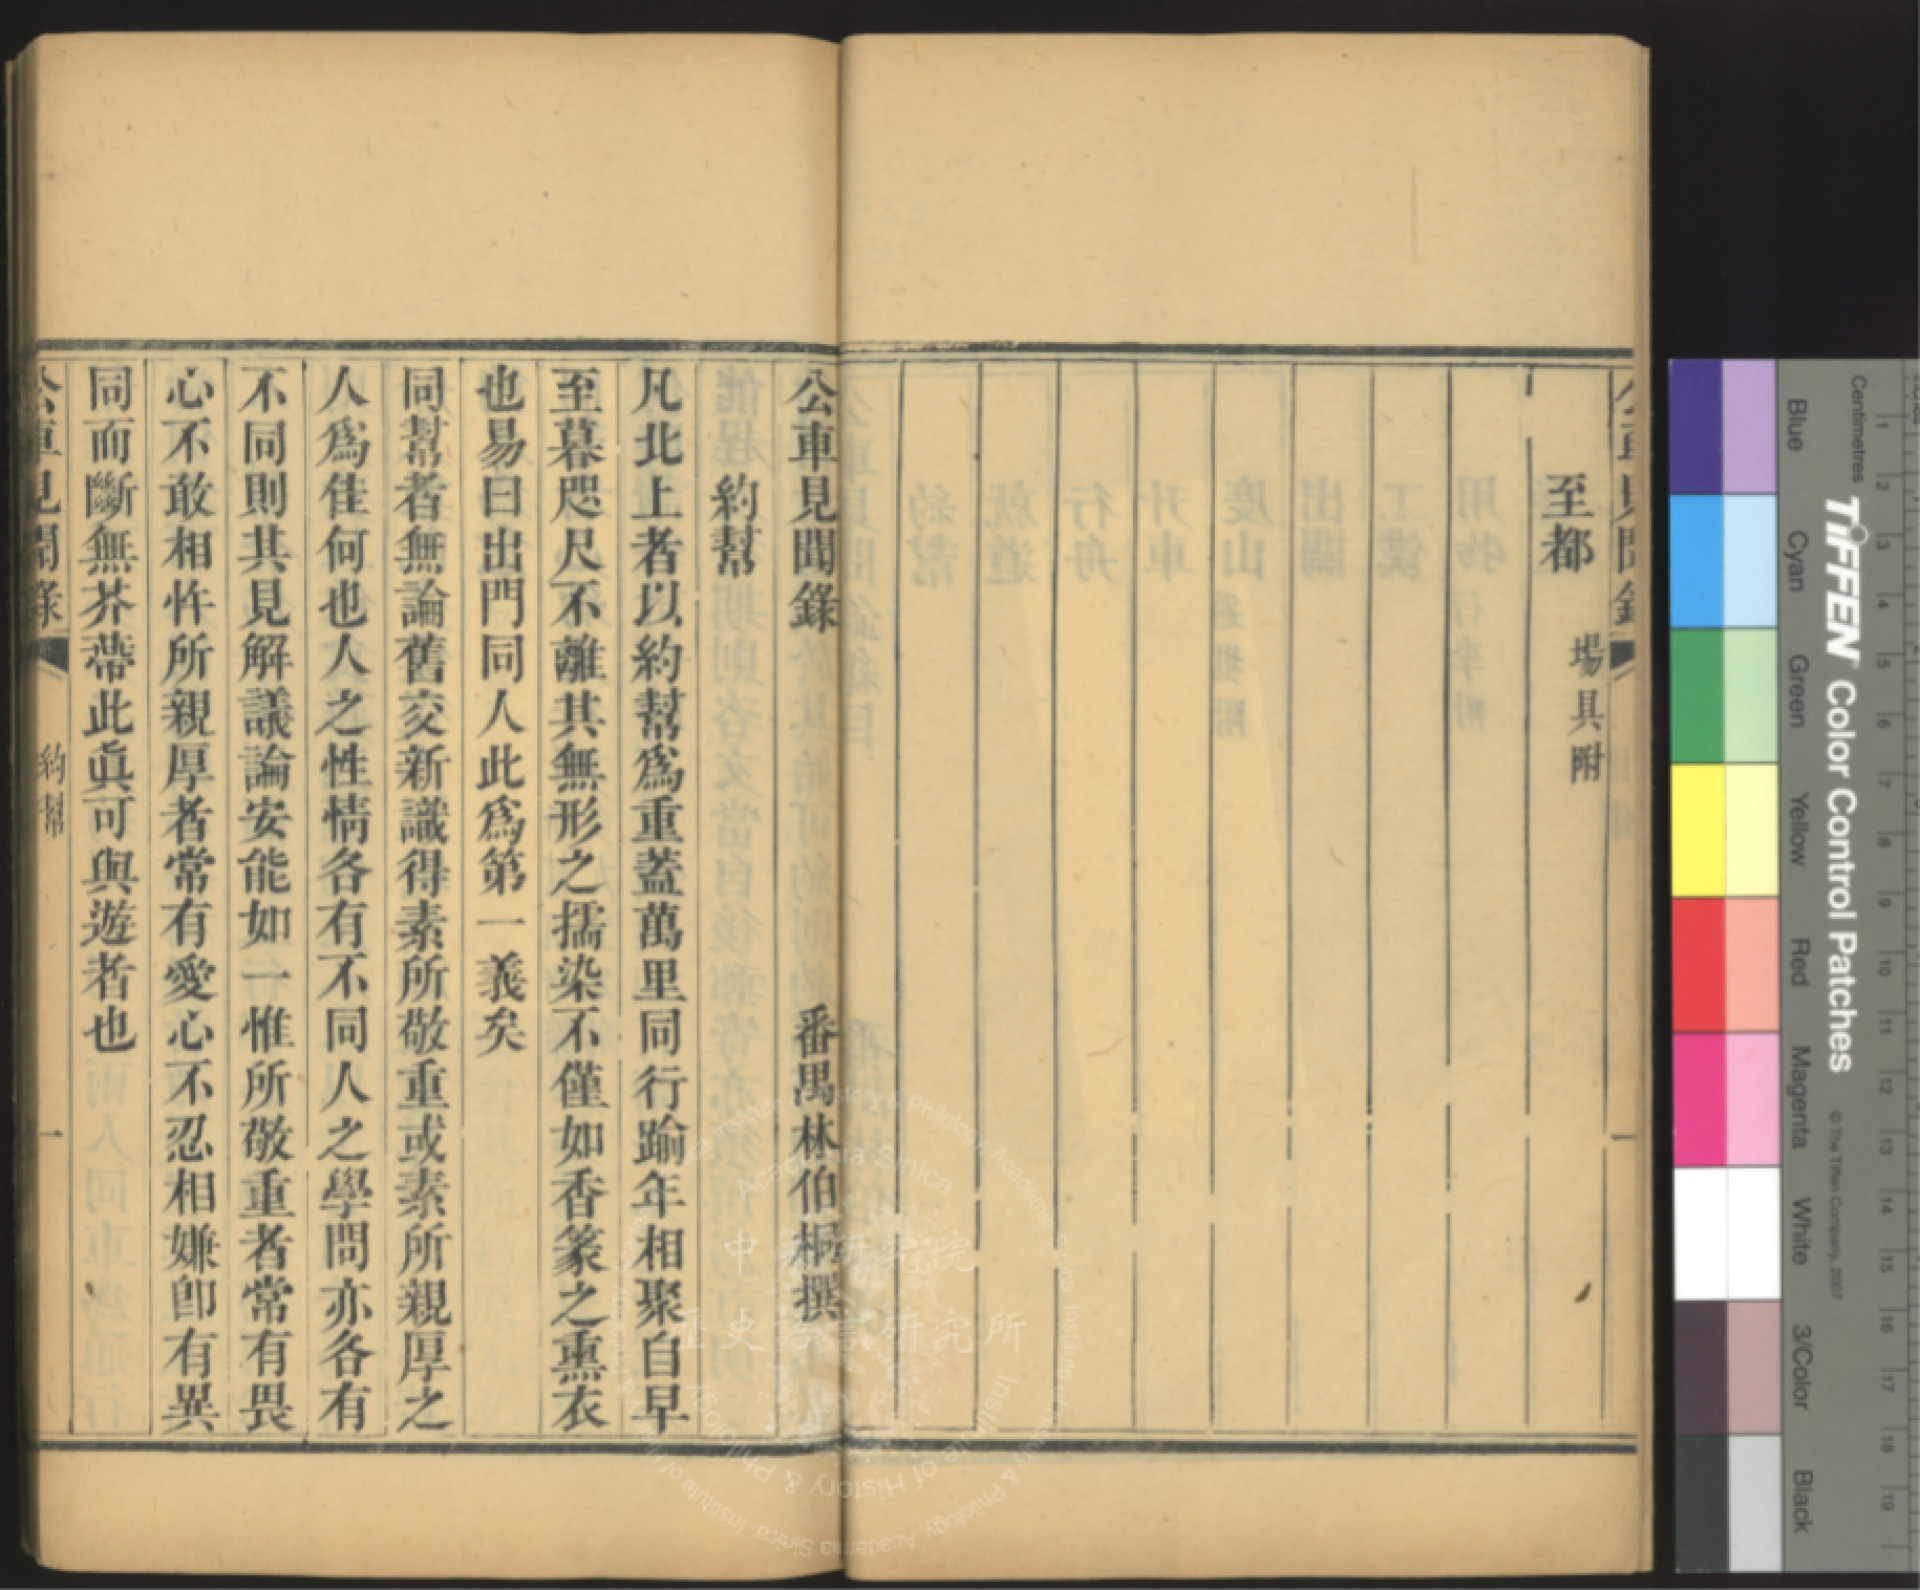 至都 場具附
公車見聞錄 番禺林伯桐撰
約幫
凡北上者以約幫爲重蓋萬里同行踰年相聚自早
至暮咫尺不離其無形之擩染不僅如香篆之熏衣
也易曰出門同人此爲第一義矣
同幫者無論舊交新識得素所敬重或素所親厚之
人爲佳何也人之性情各有不同人之學問亦各有
不同則其見解議論安能如一惟所敬重者常有畏
心不敢相忤所親厚者常有愛心不忍相嫌卽有異
同而斷無芥蔕此眞可與遊者也
公車見聞錄 約幫 一
中央研究院
歷史語言研究所
Institute of History & Philology, Academia Sinica
Centimetres
TIFFEN Color Control Patches
© The Tiffen Company, 2007
Blue
Cyan
Green
Yellow
Red
Magenta
White
3/Color
Black
1 2 3 4 5 6 7 8 9 10 11 12 13 14 15 16 17 18 19